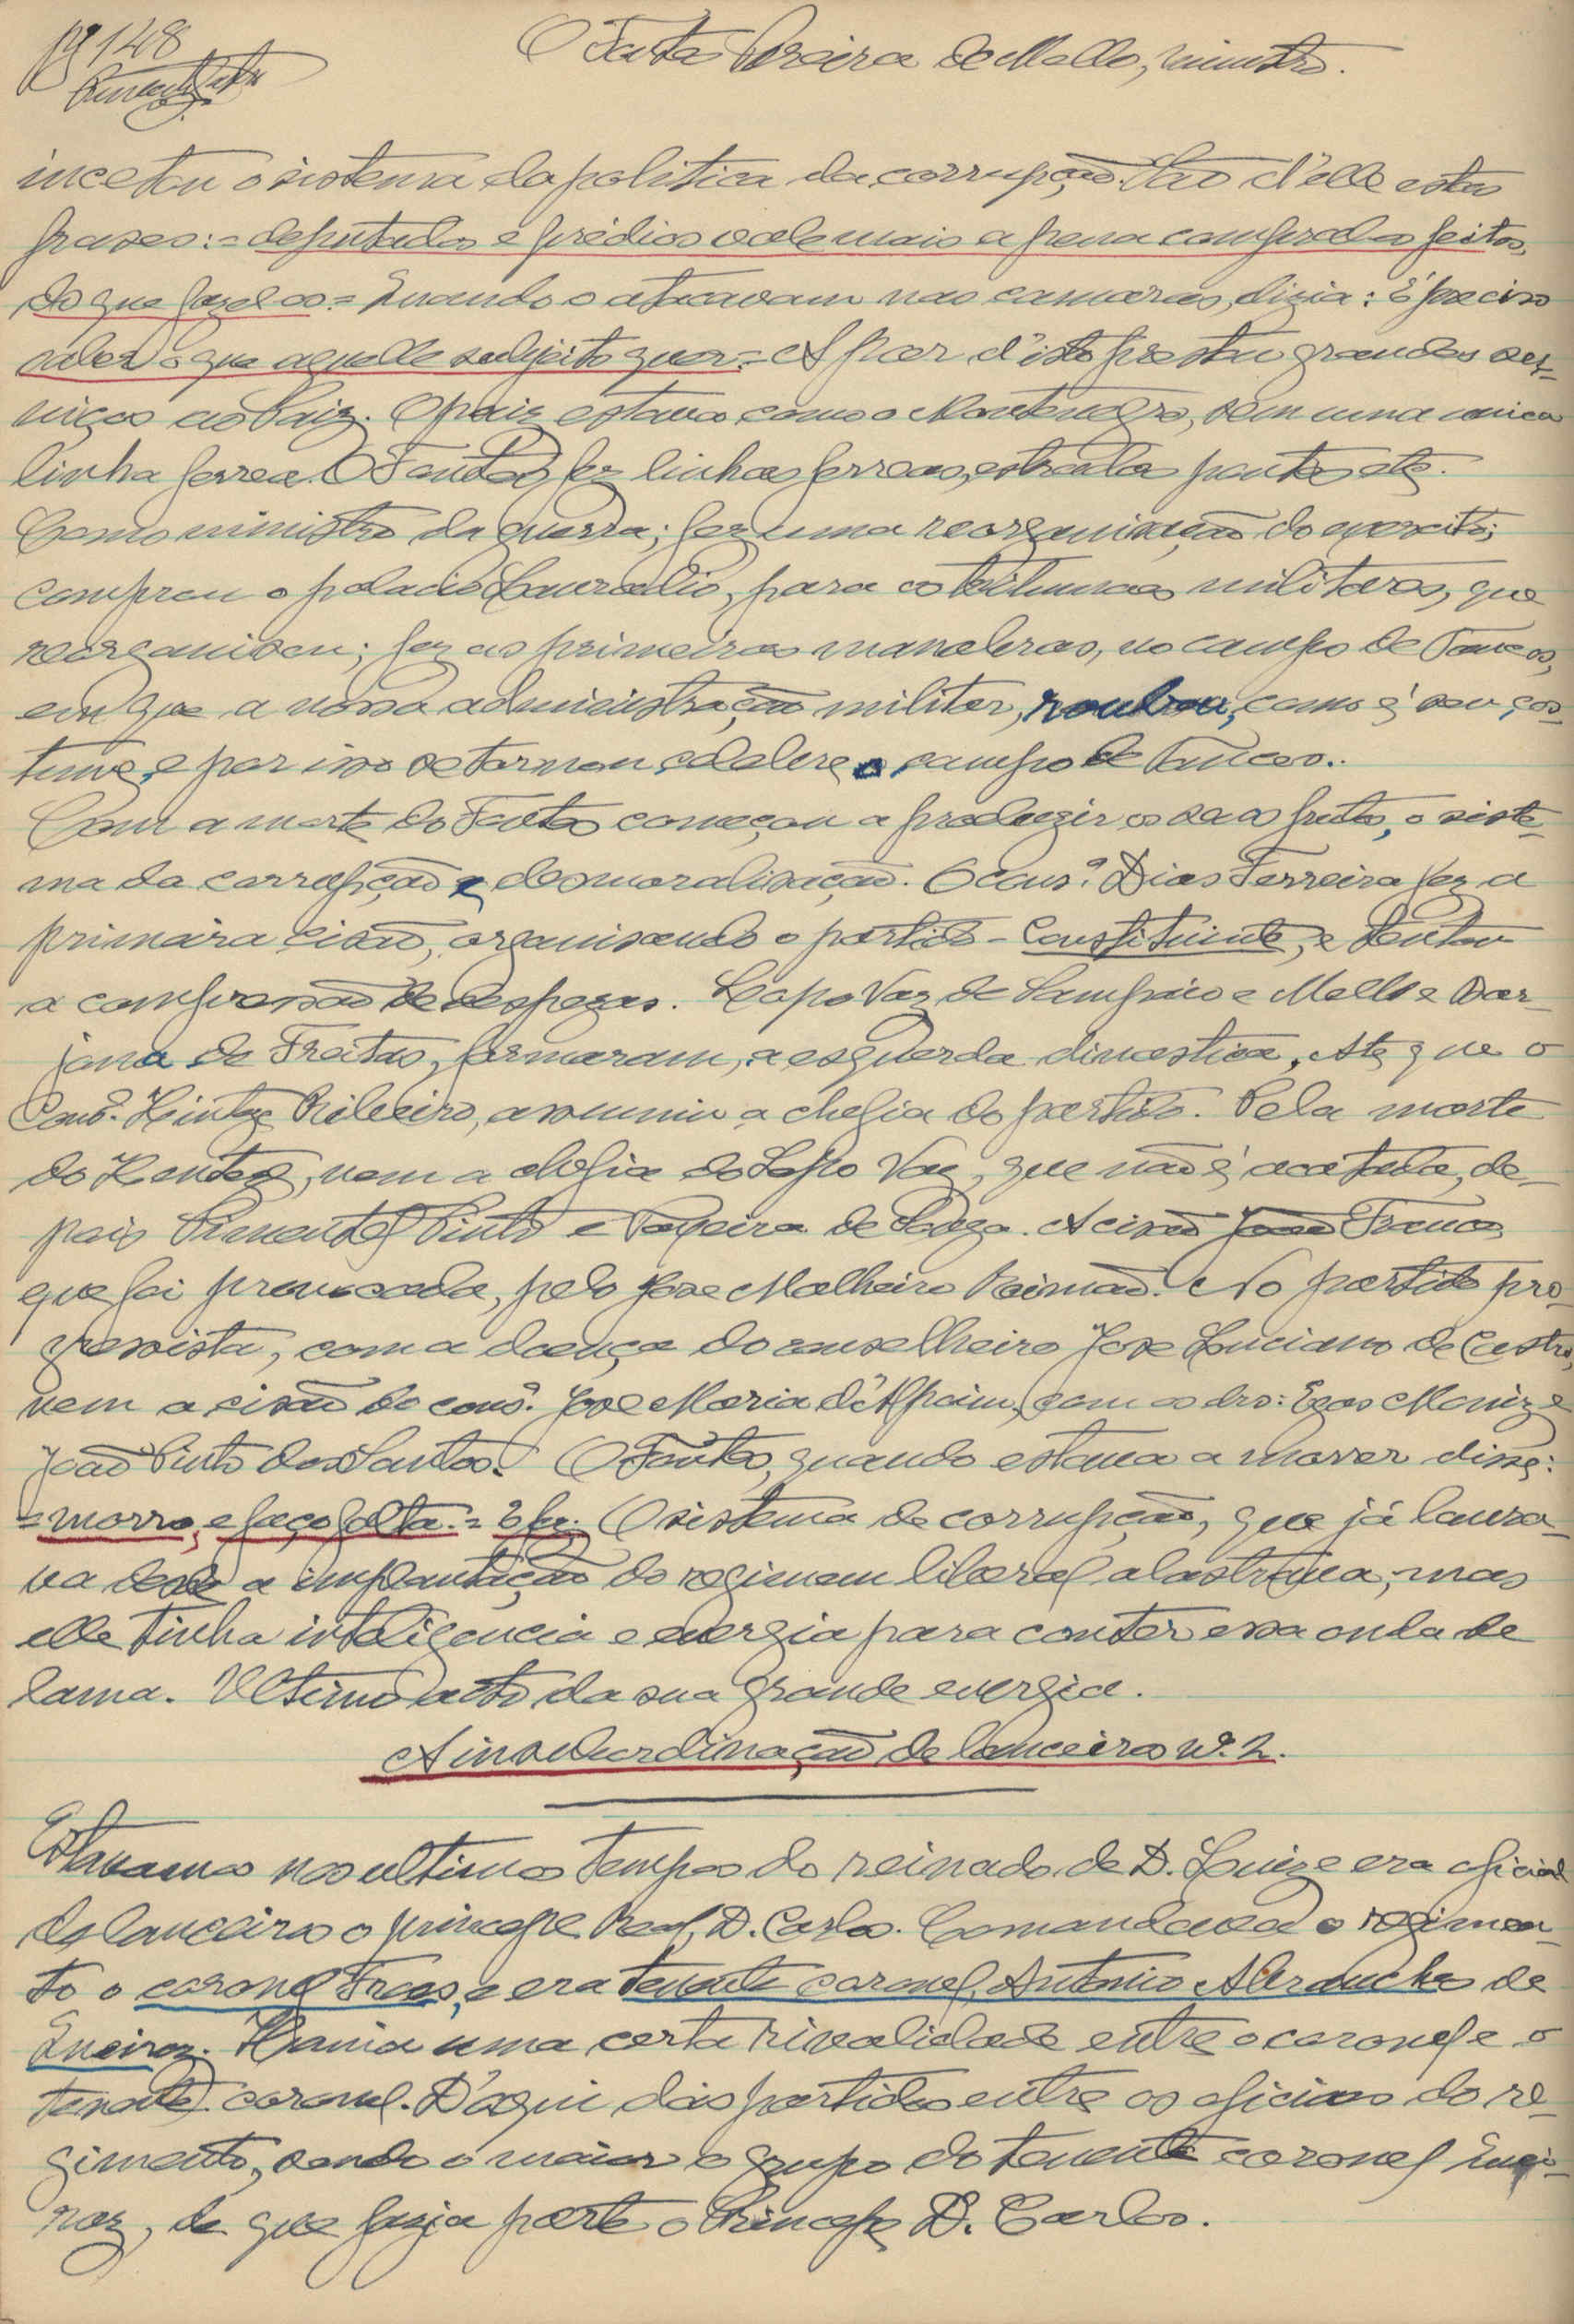 pg 148
O Fontes Pereira de Mello, ministro.
incetou o sistema da politica da corrupção. São d'elle estas
frases: = deputados e prédios vale mais a pena compral-os feitos,
do que fazel-os = Quando o atacavam nas camaras, dizia: É preciso
saber o que aquelle sudjeito quer = A par d'isto prestou grandes ser-
viços ao Paiz. O paiz estava como o Montenegro, sem uma unica
linha ferrea. O Fontes fez linhas ferreas, estradas pontes etc.
Como ministro da guerra; fez uma reorganisação do exercito;
comprou o palacio Lavradio, para os tribunaes militares, que
reorganisou; fez as primeiras manobras, no campo de Tancos,
em que a nossa administração militar, roubou, como é seu cos-
tume, e por isso se tornou celebre o campo de Tancos.
Com a morte do Fontes começou a produzir os seus frutos, o siste-
ma da corrupção e desmoralisação. O cons.º Dias Ferreira fez a
primeira cisão, organisando o partido - Constituinte, e tentou
a compressão de despezas. Lopo Vaz de Sampaio e Mello e Bar-
jona de Freitas, formaram, a esquerda dinastica, até que o
Cons.º Hintze Ribeiro, assumiu a chefia do partido. Pela morte
do Hintze, vem a chefia do Lopo Vaz, que não é acatada, de-
pois Pimentel Pinto e Teixeira de Souza. A cisão João Franco,
que foi provocada, pelo José Malheiro Reimão. No partido pro-
gressista, com a doença do conselheiro José Luciano de Castro,
vem a cisão do cons.º José Maria d'Alpoim, com os drs: Egas Moniz e
João Pinto dos Santos. O Fontes, quando estava a morrer disse:
= morro, e faço falta = E fez. O sistema de corrupção, que já lavra-
va desde a implantação do regimem liberal alastrava, mas
elle tinha inteligencia e energia para conter essa onda de
lama. Ultimo acto da sua grande energia.
A insubordinação de lanceiros nº. 2.
Estavamos nos ultimos tempos do reinado de D. Luiz e era oficial
de lanceiros o principe Real, D. Carlos. Comandava o regimen-
to o coronel Froes, e era tenente coronel, Antonio Abranches de
Queiroz. Havia uma certa rivalidade entre o coronel e o
tenente coronel. D'aqui dois partidos entre os oficiaes do re-
gimento, sendo o maior o grupo do tenente coronel Quei-
roz, de que fazia parte o Principe D. Carlos.